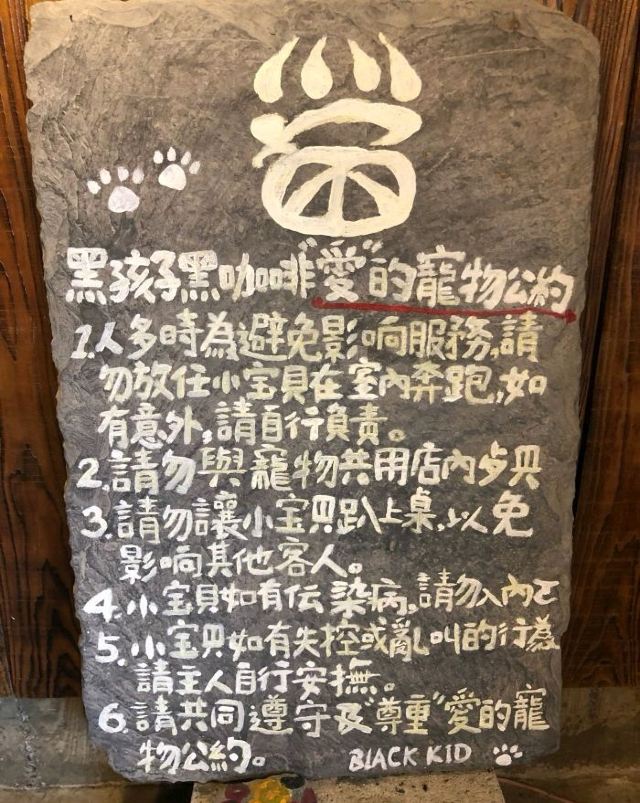 黑孩子黑咖啡"愛"的寵物公約
1.人多時為避免影响服務,請
勿放任小宝貝在室內奔跑,如
有意外,請自行負責。
2.請勿與寵物共用店內歺具
3.請勿讓小宝貝趴上桌,以免
影响其他客人。
4.小宝貝如有伝染病,請勿入內
5.小宝貝如有失控或亂叫的行為
請主人自行安撫。
6.請共同遵守及"尊重"愛的寵
物公約。 BLACK KID